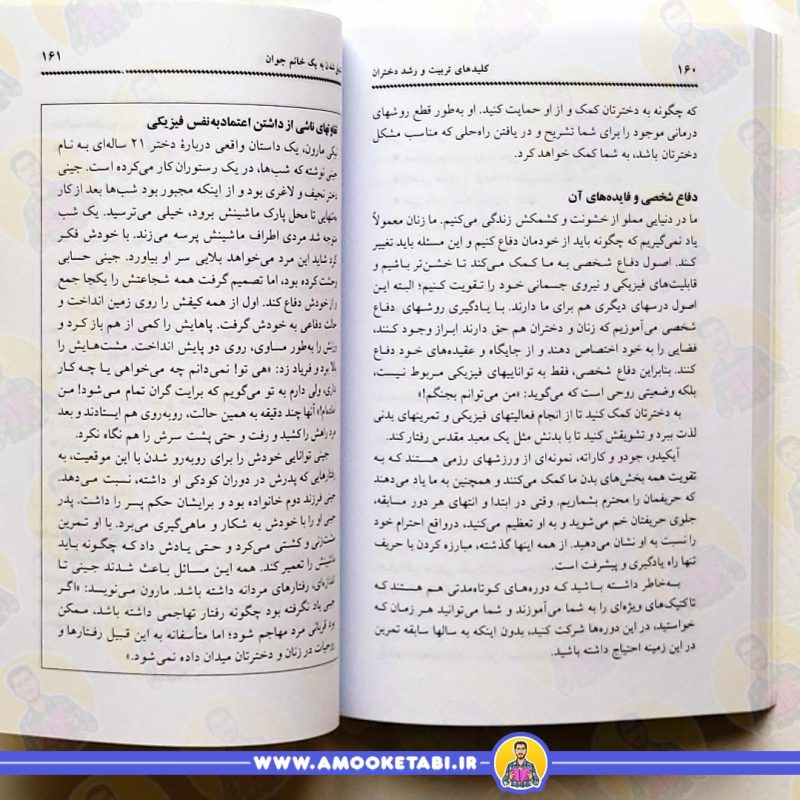 ۱۶۰
کلیدهای تربیت و رشد دختران
که چگونه به دخترتان کمک و از او حمایت کنید. او به‌طور قطع روشهای
درمانی موجود را برای شما تشریح و در یافتن راه‌حلی که مناسب مشکل
دخترتان باشد، به شما کمک خواهد کرد.
دفاع شخصی و فایده‌های آن
ما در دنیایی مملو از خشونت و کشمکش زندگی می‌کنیم. ما زنان معمولاً
یاد نمی‌گیریم که چگونه باید از خودمان دفاع کنیم و این مسئله باید تغییر
کند. اصول دفاع شخصی به ما کمک می‌کند تا خشن‌تر باشیم و
قابلیت‌های فیزیکی و نیروی جسمانی خود را تقویت کنیم؛ البته این
اصول درسهای دیگری هم برای ما دارند. با یادگیری روشهای دفاع
شخصی می‌آموزیم که زنان و دختران هم حق دارند ابراز وجود کنند،
فضایی را به خود اختصاص دهند و از جایگاه و عقیده‌های خود دفاع
کنند. بنابراین دفاع شخصی، فقط به تواناییهای فیزیکی مربوط نیست،
بلکه وضعیتی روحی است که می‌گوید: «من می‌توانم بجنگم!»
به دخترتان کمک کنید تا از انجام فعالیتهای فیزیکی و تمرینهای بدنی
لذت ببرد و تشویقش کنید تا با بدنش مثل یک معبد مقدس رفتار کند.
آیکیدو، جودو و کاراته، نمونه‌ای از ورزشهای رزمی هستند که به
تقویت همه بخش‌های بدن ما کمک می‌کنند و همچنین به ما یاد می‌دهند
که حریفمان را محترم بشماریم. وقتی در ابتدا و انتهای هر دور مسابقه،
جلوی حریفتان خم می‌شوید و به او تعظیم می‌کنید، درواقع احترام خود
را نسبت به او نشان می‌دهید. از همه اینها گذشته، مبارزه کردن با حریف
تنها راه یادگیری و پیشرفت است.
به‌خاطر داشته باشید که دوره‌های کوتاه‌مدتی هم هستند که
تاکتیک‌های ویژه‌ای را به شما می‌آموزند و شما می‌توانید هر زمان که
خواستید، در این دوره‌ها شرکت کنید، بدون اینکه به سالها سابقه تمرین
در این زمینه احتیاج داشته باشید.
شدن به یک خانم جوان
۱۶۱
تفاوتهای ناشی از داشتن اعتمادبه‌نفس فیزیکی
مارون، یک داستان واقعی دربارهٔ دختر ۲۱ ساله‌ای به نام
جینی نوشته که شب‌ها، در یک رستوران کار می‌کرده است. جینی
دختر نحیف و لاغری بود و از اینکه مجبور بود شب‌ها بعد از کار
به‌تنهایی تا محل پارک ماشینش برود، خیلی می‌ترسید. یک شب
متوجه شد مردی اطراف ماشینش پرسه می‌زند. با خودش فکر
کرد شاید این مرد می‌خواهد بلایی سر او بیاورد. جینی حسابی
وحشت کرده بود، اما تصمیم گرفت همه شجاعتش را یکجا جمع
و از خودش دفاع کند. اول از همه کیفش را روی زمین انداخت و
حالت دفاعی به خودش گرفت. پاهایش را کمی از هم باز کرد و
وزنش را به‌طور مساوی، روی دو پایش انداخت. مشت‌هایش را
بالا برد و فریاد زد: «هی تو! نمی‌دانم چه می‌خواهی یا چه کار
داری، ولی دارم به تو می‌گویم که برایت گران تمام می‌شود! من
آماده‌ام!» آنها چند دقیقه به همین حالت، روبه‌روی هم ایستادند و بعد
مرد راهش را کشید و رفت و حتی پشت سرش را هم نگاه نکرد.
جینی توانایی خودش را برای روبه‌رو شدن با این موقعیت، به
رفتارهایی که پدرش در دوران کودکی او داشته، نسبت می‌دهد.
جینی فرزند دوم خانواده بود و برایشان حکم پسر را داشت. پدر
جینی او را با خودش به شکار و ماهی‌گیری می‌برد. با او تمرین
مشت‌زنی و کشتی می‌کرد و حتی یادش داد که چگونه باید
ماشینش را تعمیر کند. همه این مسائل باعث شدند جینی تا
اندازه‌ای، رفتارهای مردانه داشته باشد. مارون می‌نویسد: «اگر
جینی یاد نگرفته بود چگونه رفتار تهاجمی داشته باشد، ممکن
بود قربانی مرد مهاجم شود؛ اما متأسفانه به این قبیل رفتارها و
روحیات در زنان و دخترتان میدان داده نمی‌شود.»
WWW.AMOOKETABI.IR